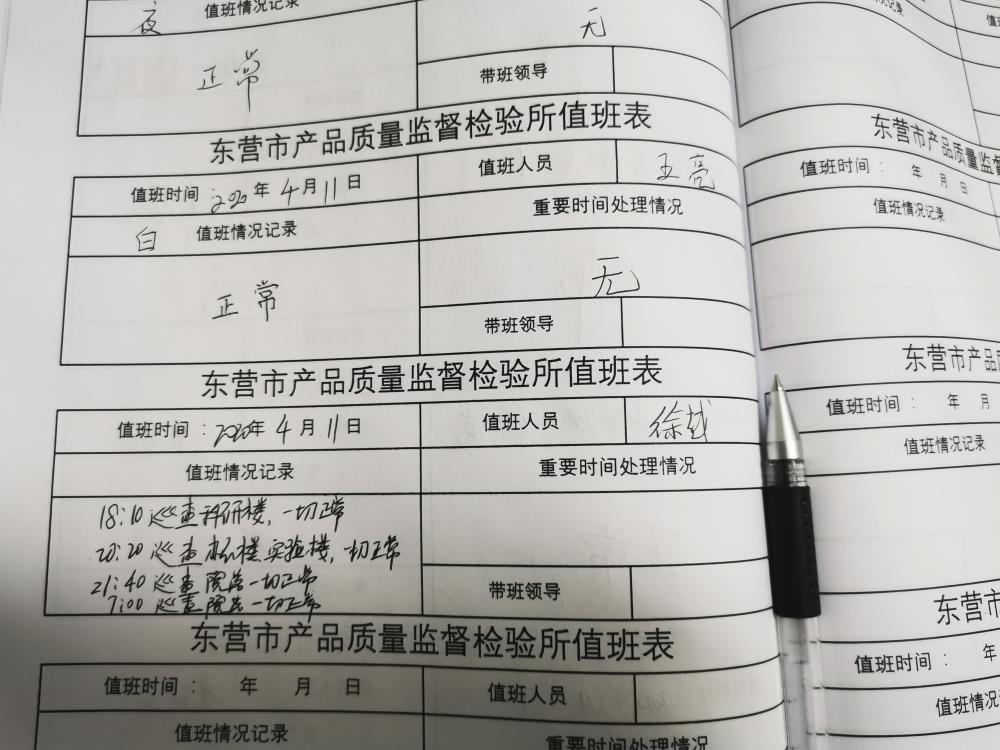 夜 值班情况记录
无
正常
带班领导
东营市产品质量监督检验所值班表
值班时间：2020年 4月 11日 值班人员 王亮
白 值班情况记录 重要时间处理情况
正常 无
带班领导
东营市产品质量监督检验所值班表
值班时间：2020年 4月 11日 值班人员 徐越
值班情况记录 重要时间处理情况
18:10 巡查科研楼，一切正常
20:20 巡查办公楼 实验楼，一切正常
21:40 巡查院落一切正常
7:00 巡查院落一切正常
带班领导
东营市产品质量监督检验所值班表
值班时间： 年 月 日 值班人员
值班情况记录 重要时间处理情况
东营市产品质量监
值班时间： 年 月 日
值班情况记录
东营市产品
值班时间： 年 月
值班情况记录
东营市
值班时间： 年
值班情况